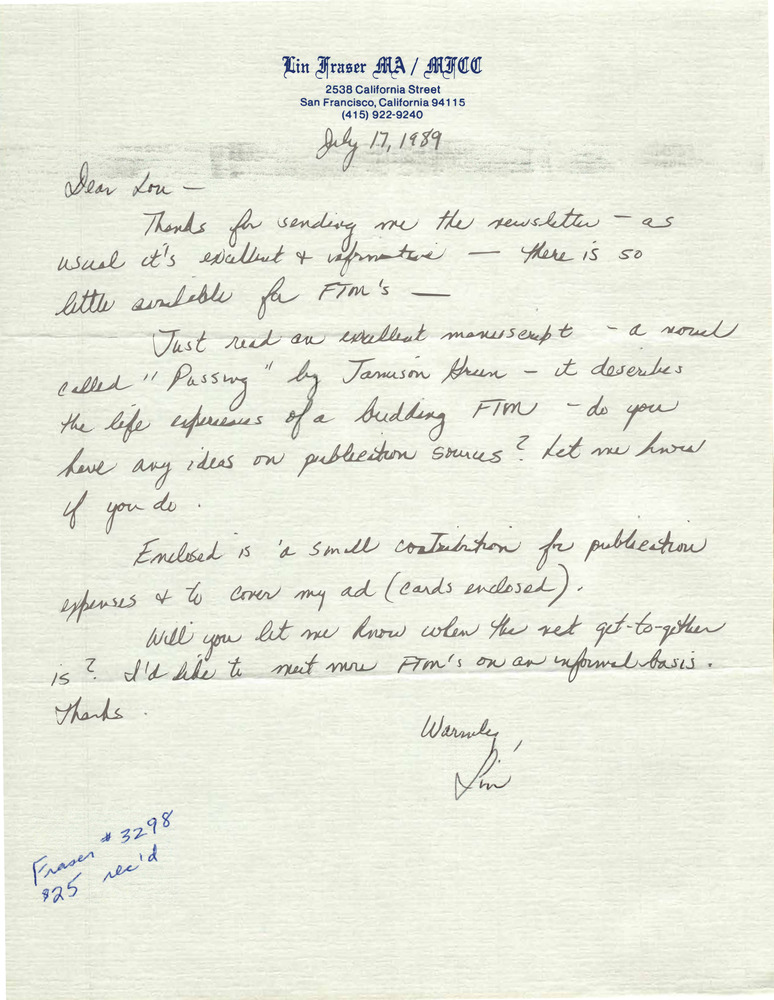 Lin Fraser MA / MFCC
2538 California Street
San Francisco, California 94115
(415) 922-9240
July 17, 1989
Dear Lou -
Thanks for sending me the newsletter - as
usual it's excellent & informative - there is so
little available for FTM's -
Just read an excellent manuscript - a novel
called "Passing" by Jamison Green - it describes
the life experiences of a budding FTM - do you
have any ideas on publication sources? Let me know
if you do.
Enclosed is a small contribution for publication
expenses & to cover my ad (cards enclosed).
Will you let me know when the next get-to-gether
is? I'd like to meet more FTM's on an informal basis.
Thanks.
Warmly,
Lin
Fraser #3298
$25 rec'd